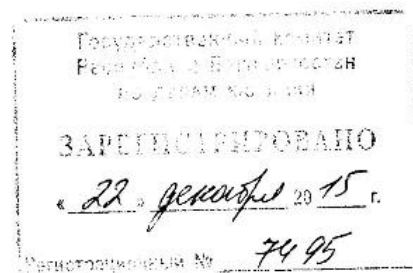 Государственный комитет
Республики Башкортостан
по делам юстиции
ЗАРЕГИСТРИРОВАНО
« 22 » декабря 20 15 г.
Регистрационный № 7495